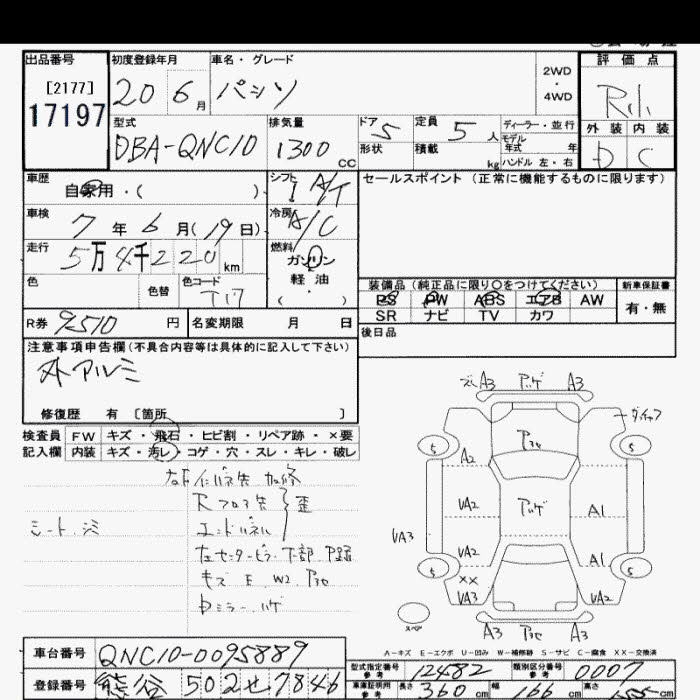 出品番号 初度登録年月 車名・グレード 評価点
[2177] 20 6月 パッソ 2WD・4WD
17197
型式 排気量 ドア 5 定員 5人 ディーラー・並行 外装 内装
DBA-QNC10 1300 CC 形状 積載 kg モデル年式 年 D C
ハンドル 左・右
車歴 自家用・( ) シフト I A/T セールスポイント (正常に機能するものに限ります)
車検 7年 6月(19日) 冷房 A/C
走行 5万4千220km 燃料 ガソリン
色 色替 色コード 軽油 ( )
装備品(純正品に限り〇をつけてください) 新車保証書
PS PW ABS エアB AW 有・無
SR ナビ TV カワ
R券 9510 円 名変期限 月 日 後日品
注意事項申告欄(不具合内容等は具体的に記入して下さい)
外アルミ
修復歴 有 [箇所 ]
検査員 FW キズ・飛石・ヒビ割・リペア跡・×要
記入欄 内装 キズ・汚レ・コゲ・穴・スレ・キレ・破レ
Rフロア先 歪
シート、シミ エンドパネル
左センターピラー下部
キズ E W2
ミラー ハゲ
A3 A3
5 5
A2
UA2 A1
UA3
UA2 A1
5 ×× 5
UA3 UA2
スペア A3 A3
A-キズ E-エクボ U-凹み W-補修跡 S-サビ C-腐食 XX-交換済
車台番号 QNC10-0095889
型式指定番号 参考 12482 類別区分番号 参考 0007
登録番号 熊谷 502 せ 7846
車庫証明用 参考 長さ 360 cm 幅 166 cm 高さ cm